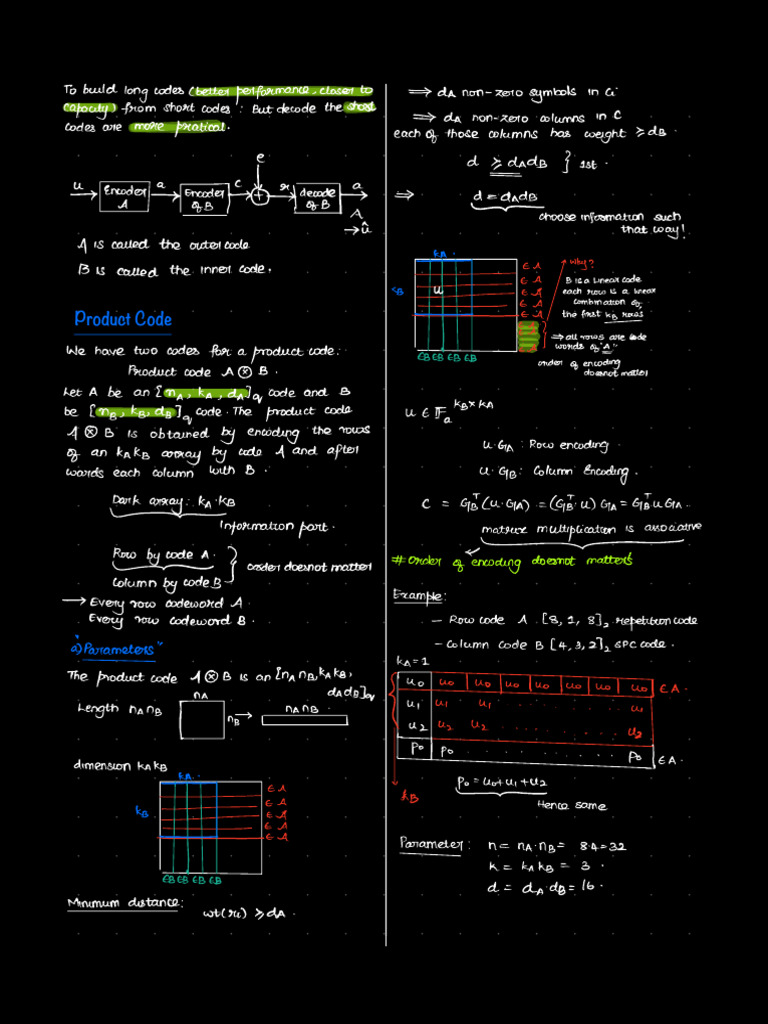 To build long codes (better performance, closer to
capacity) from short codes: But decode the short
codes are more pratical.
e
u
Encoder
A
a
Encoder
of B
c
+
r
decode
of B
a
A
→ û
A is called the outer code
B is called the inner code.
Product Code
We have two codes for a product code:
Product code A ⊗ B.
Let A be an [nA, kA, dA]q code and B
be [nB, kB, dB]q code. The product code
A ⊗ B is obtained by encoding the rows
of an kAkB array by code A and after
wards each column with B.
Dark array: kA·kB
Information part.
Row by code A.
Column by code B
order doesnot matter
→ Every row codeword A.
Every row codeword B.
a) Parameters"
The product code A ⊗ B is an [nA nB, kA kB,
dAdB]q
Length nA nB
nA
nB
→
nA nB
dimension kAkB
kA
kB
∈ A
∈ A
∈ A
∈ A
∈ A
∈B ∈B ∈B ∈B
Minimum distance:
wt(ri) ≥ dA.
⇒ dA non-zero symbols in
⇒ dA non-zero columns in C
each of those columns has weight ≥ dB.
d ≥ dAdB } 1st.
⇒ d = dAdB
choose information such
that way!
kA
u
∈ A
∈ A
∈ A
∈ A
∈ A
∈B ∈B ∈B ∈B
why?
B is a linear code
each row is a linear
combination of
the first kB rows
⇒ all rows are code
words of "A".
order of encoding
doesnot matter
u ∈ F kB×kA
u·GA : Row encoding.
u·GB : Column Encoding.
C = GB^T (u·GA) = (GB^T·u) GA = GB^T u GA.
matrix multiplication is associative
# order of encoding doesnot matters
Example:
- Row code A [8, 1, 8]2 repetition code
- Column code B [4, 3, 2]2 SPC code.
kA = 1
u0 u0 u0 u0 u0 u0 u0 u0 ∈ A.
u1 u1 u1 . . . . . u1
u2 u2 u2 . . . . . u2
p0 p0 . . . . . . p0 ∈ A.
kB
p0 = u0+u1+u2
Hence same
Parameter: n = nA·nB = 8·4 = 32
k = kA kB = 3.
d = dA·dB = 16.